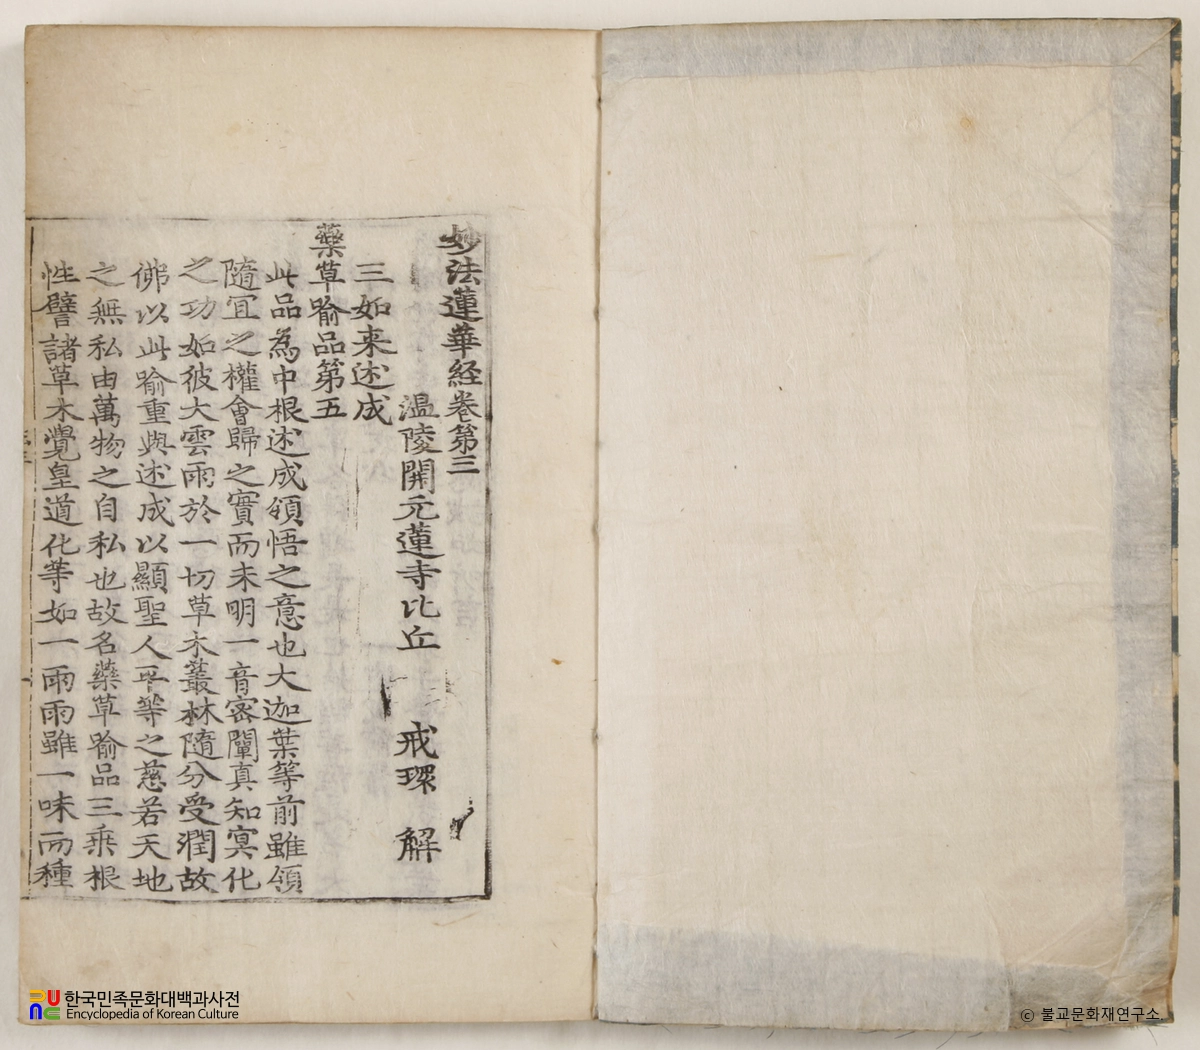 妙法蓮華経卷第三
温陵開元蓮寺比丘 戒環 解
三如来述成
藥草喻品第五
此品為中根述成領悟之意也大迦葉等前雖領
隨冝之權會歸之實而未明一音密闡真知冥化
之功如彼大雲雨於一切草木叢林隨分受潤故
佛以此喻重與述成以顯聖人平等之慈若天地
之無私由萬物之自私也故名藥草喻品三乗根
性譬諸草木覺皇道化等如一雨雨雖一味而種
한국민족문화대백과사전
Encyclopedia of Korean Culture
© 불교문화재연구소.